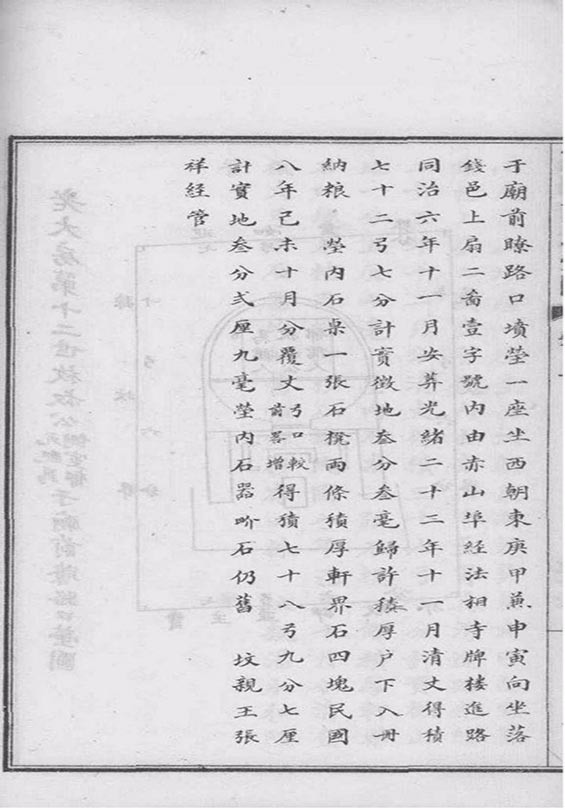 于廟前瞭路口墳塋一座坐西朝東庚甲兼申寅向坐落
錢邑上扇二啚壹字號內由赤山埠经法相寺牌樓進路
同治六年十一月安葬光緒二十二年十一月清丈得積
七十二弓七分計實徵地叁分叁毫歸許積厚户下入冊
納粮塋内石桌一張石櫈兩條積厚軒界石四塊民國
八年己未十月分覆丈弓口較前畧增得積七十八弓九分七厘
計實地叁分弍厘九毫塋内石器界石仍舊 坟親王張
祥经管